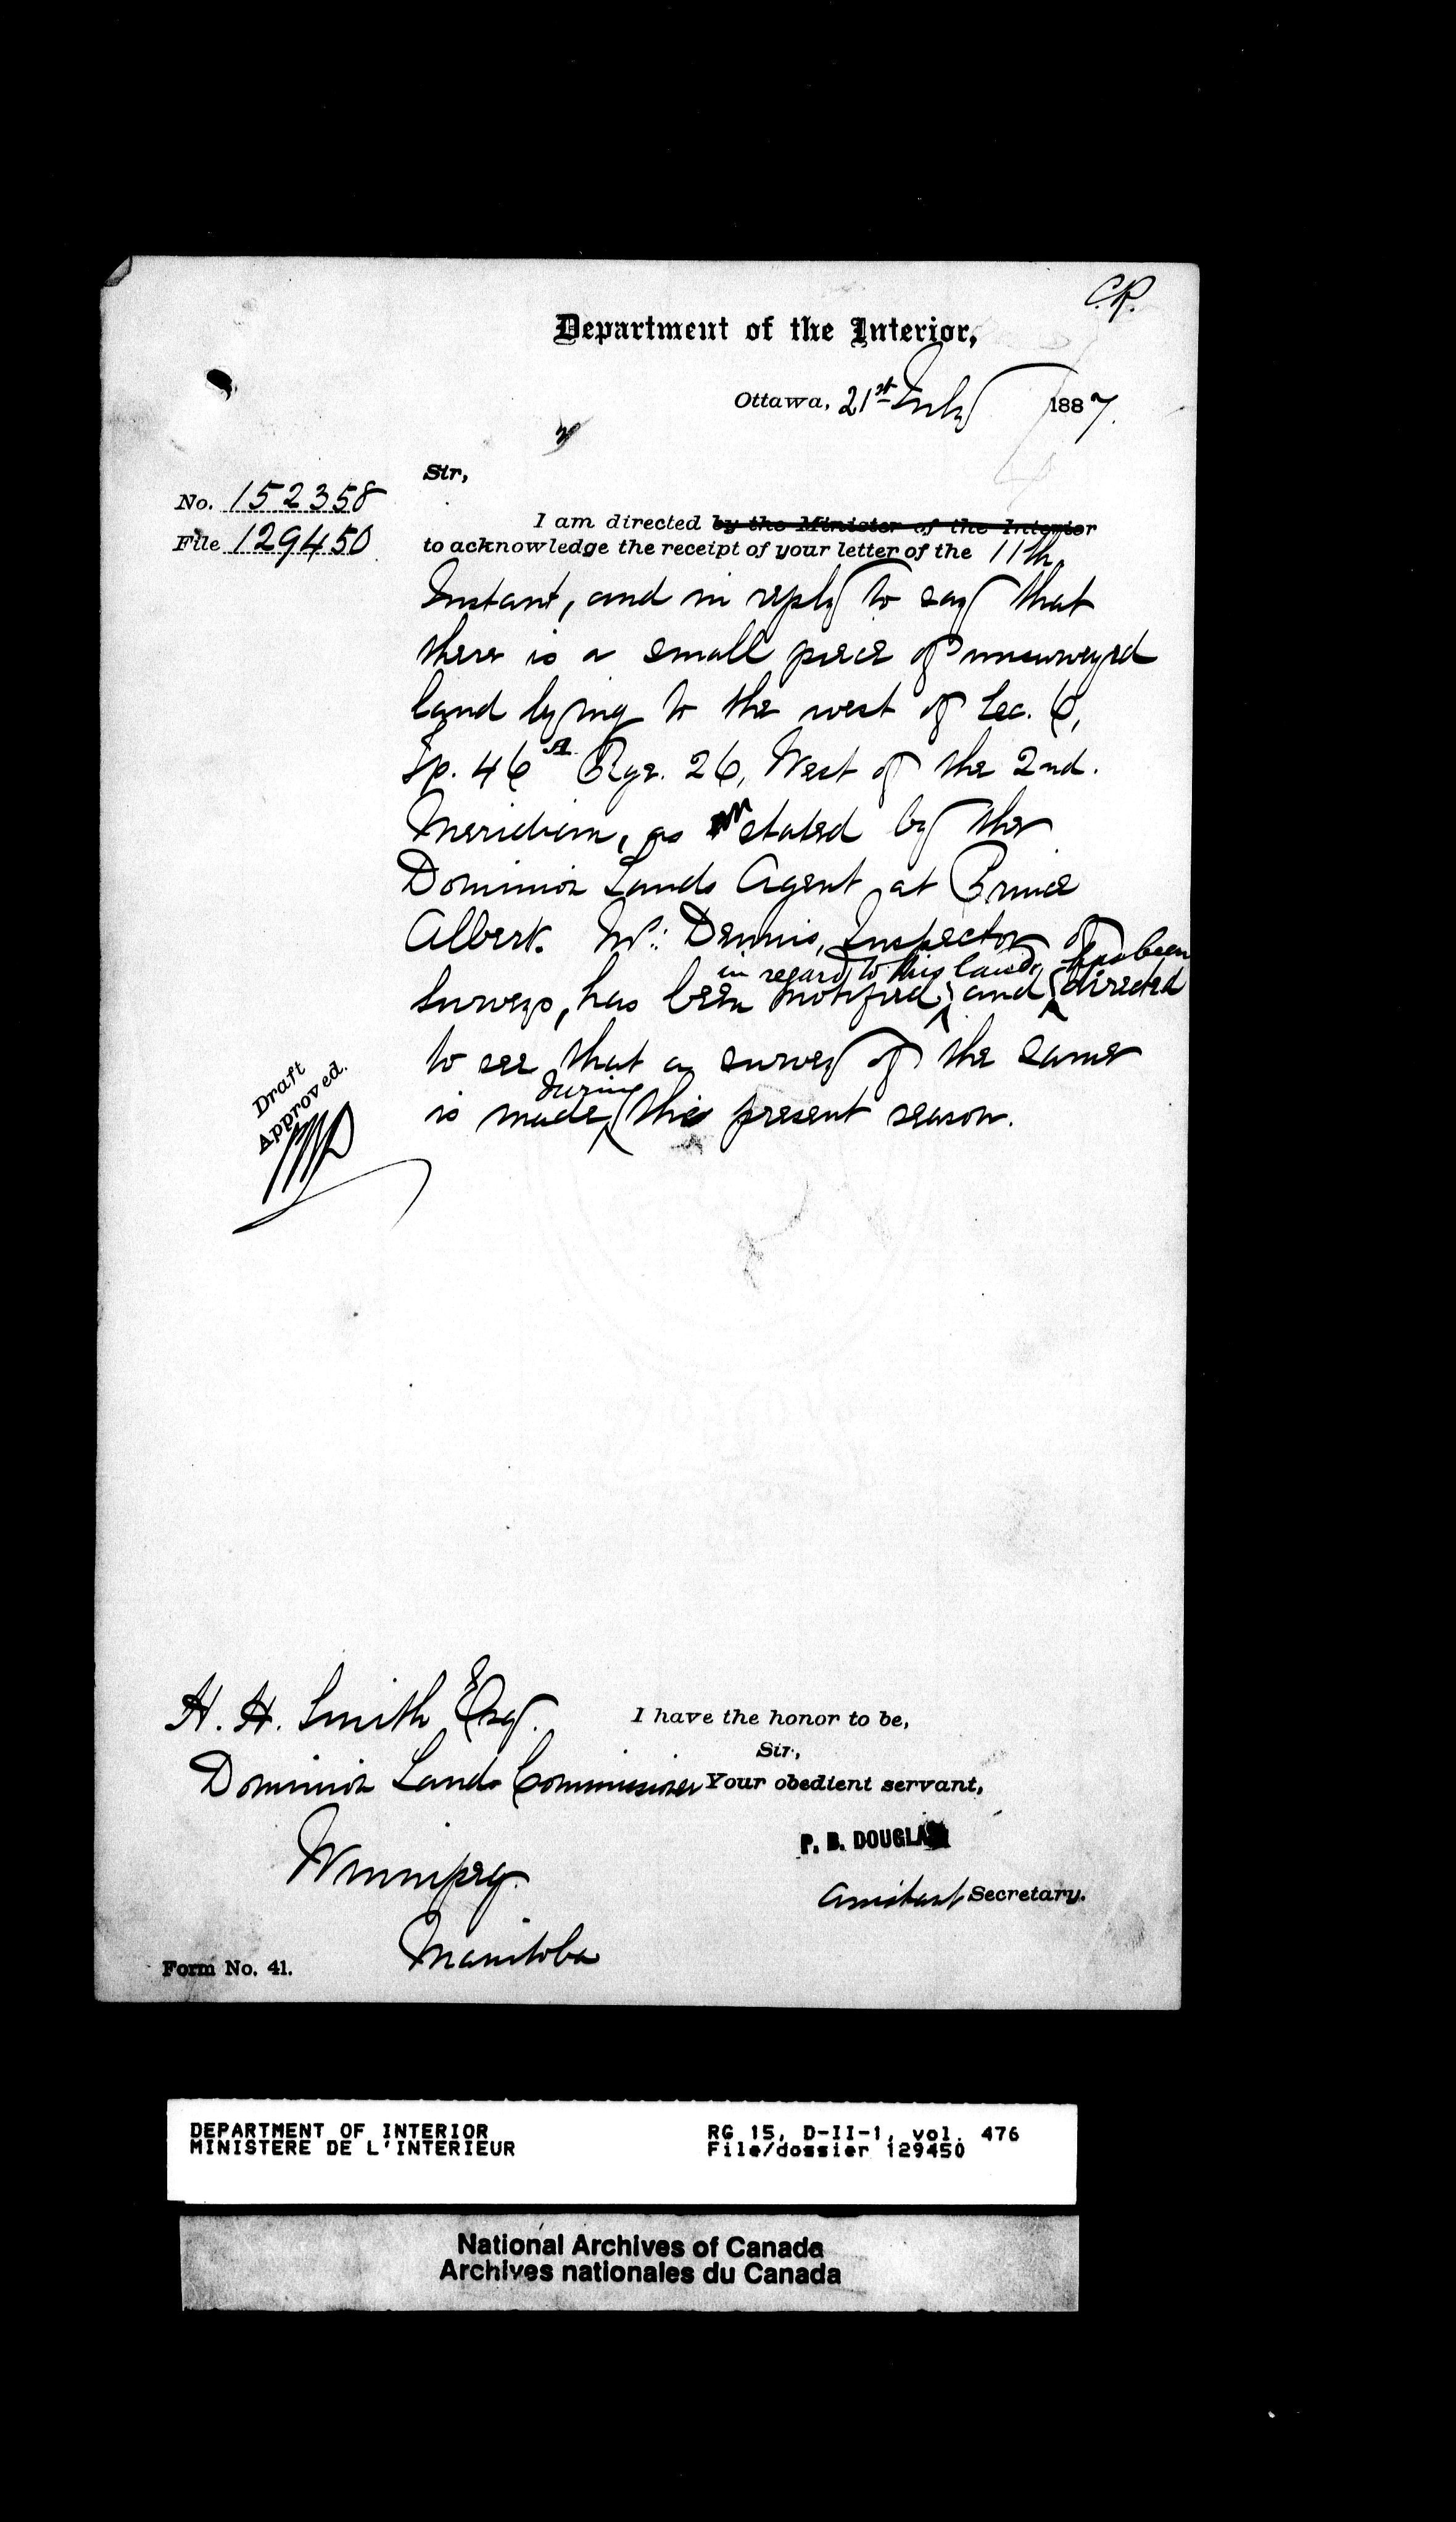 C.R.
Department of the Interior,
Ottawa, 21st July 1887.
Sir,
No. 152358
File 129450
I am directed by the Minister of the Interior
to acknowledge the receipt of your letter of the 11th
Instant, and in reply to say that
there is a small piece of unsurveyed
land lying to the west of Sec. 6,
Tp. 46 A Rge. 26, West of the 2nd.
Meridian, as stated by the
Dominion Lands Agent at Prince
Albert. Mr. Dennis, Inspector of
in regard to this land, has been
Surveys, has been notified and directed
to see that a survey of the same
during
is made this present season.
Draft
Approved.
H. H. Smith Esq.
Dominion Lands Commissioner
Winnipeg
Manitoba
I have the honor to be,
Sir,
Your obedient servant,
P. B. DOUGLAS
Assistant Secretary.
Form No. 41.
DEPARTMENT OF INTERIOR
MINISTERE DE L'INTERIEUR
RG 15, D-II-1, vol. 476
File/dossier 129450
National Archives of Canada
Archives nationales du Canada